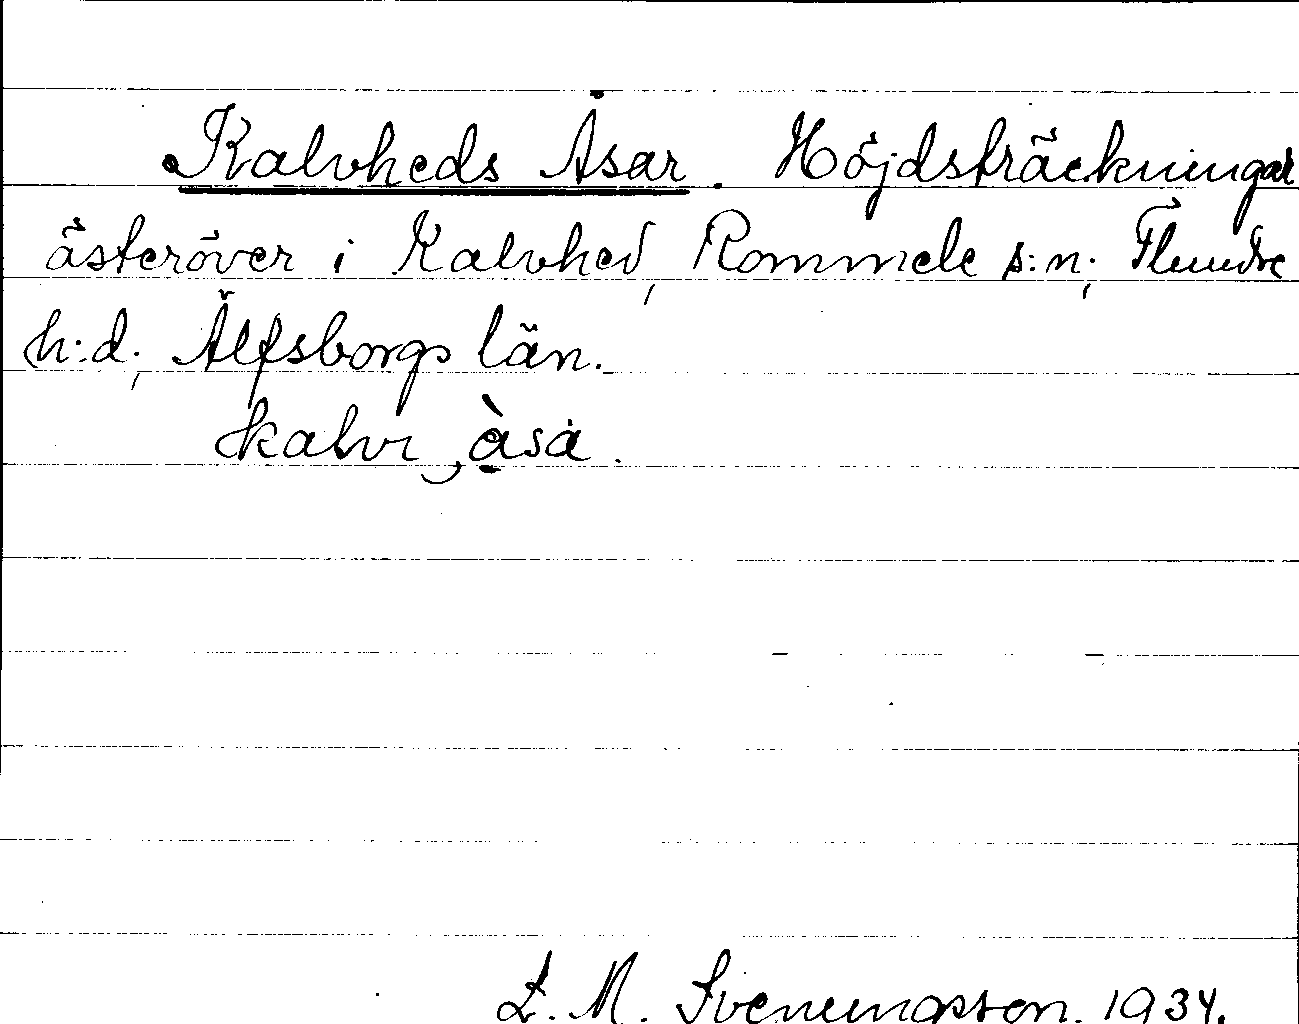 Kalvheds Åsar. Höjdsträckningar
österöver i Kalvhed, Rommele s:n, Flundre
h:d, Älfsborgs län.
kalvi, àsa.
L. M. Svenungsson. 1934.